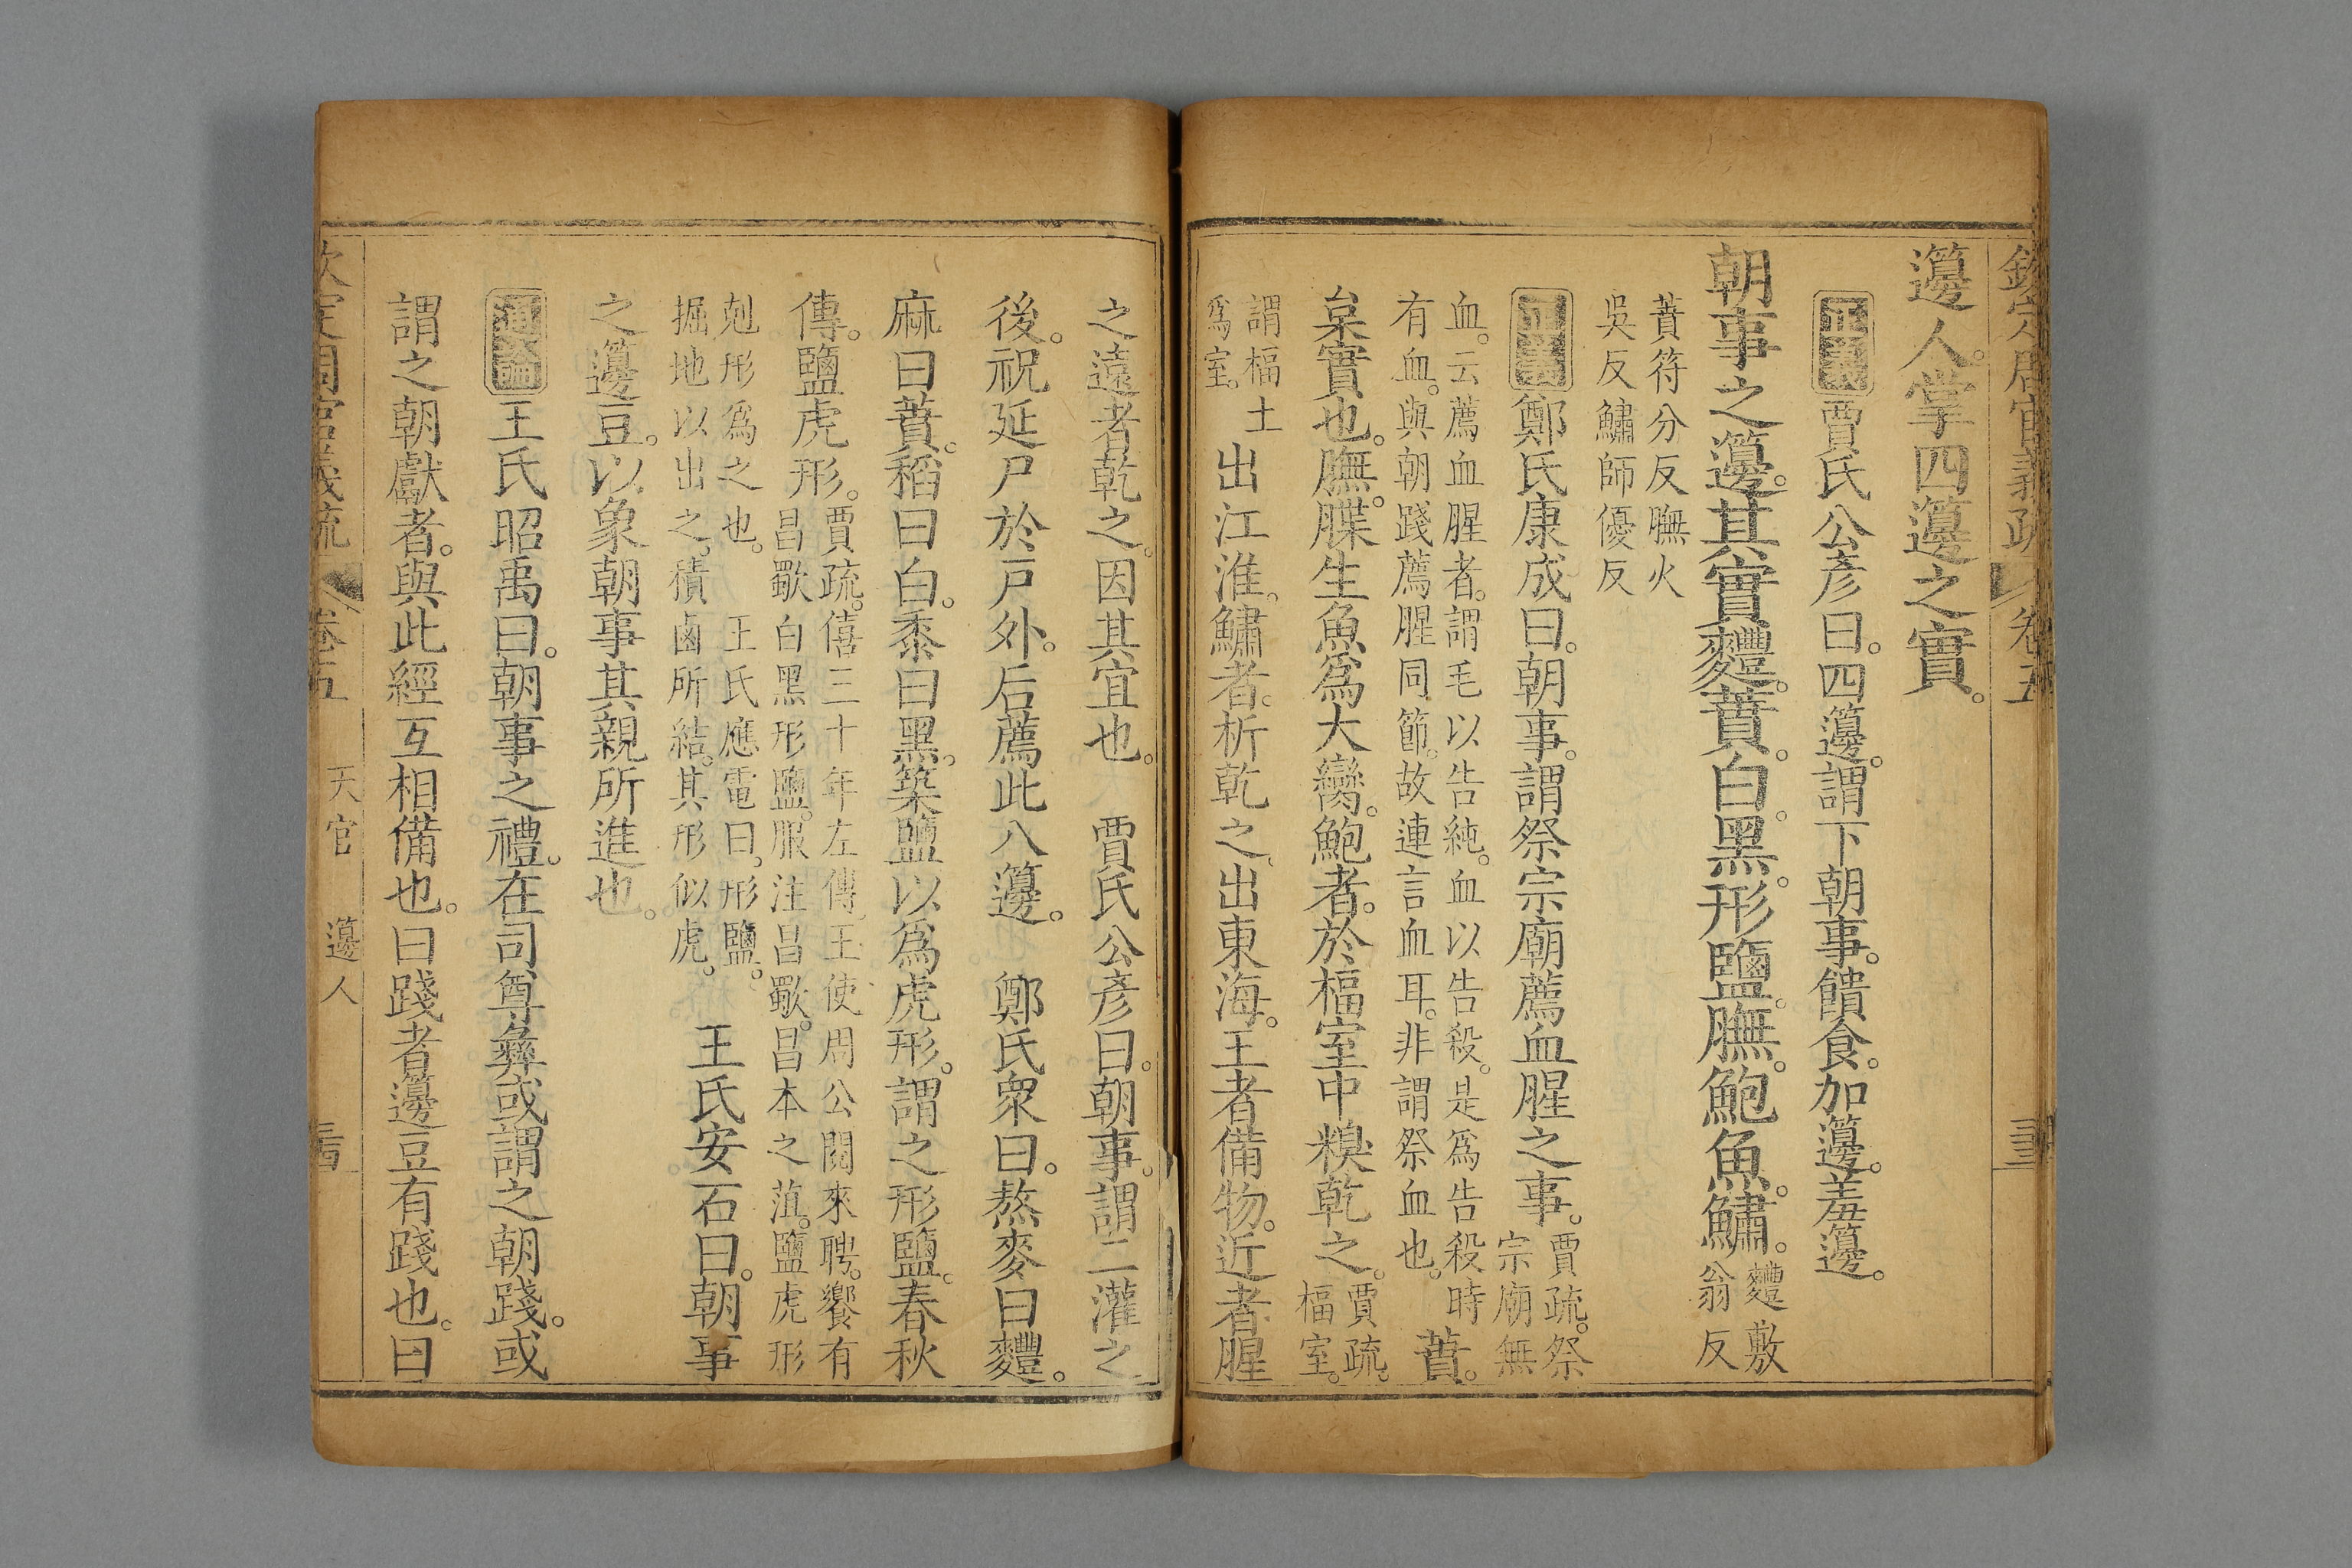 欽定周官義疏 卷五
籩人。掌四籩之實。
正義 賈氏公彥曰。四籩。謂下朝事。饋食。加籩。羞籩。
朝事之籩。其實麷。蕡。白。黑。形鹽。膴。鮑魚。鱐。麷敷
翁反
蕡符分反膴火
吳反鱐師優反
正義 鄭氏康成曰。朝事。謂祭宗廟薦血腥之事。賈疏。祭
宗廟無
血。云薦血腥者。謂毛以告純。血以告殺。是爲告殺時
有血。與朝踐薦腥同節。故連言血耳。非謂祭血也。
蕡。
枲實也。膴。䐑生魚爲大臠。鮑者。於楅室中糗乾之。賈疏。
楅室。
謂楅土
爲室。
出江淮。鱐者。析乾之。出東海。王者備物。近者腥
之遠者乾之。因其宜也。 賈氏公彥曰。朝事。謂二灌之
後。祝延尸於戶外。后薦此八籩。 鄭氏衆曰。熬麥曰麷。
麻曰蕡。稻曰白。黍曰黑。築鹽以爲虎形。謂之形鹽。春秋
傳。鹽虎形。賈疏。僖三十年左傳。王使周公閱來聘。饗有
昌歜白黑形鹽。服注昌歜。昌本之菹。鹽虎形
剋形爲之也。 王氏應電曰。形鹽。
掘地以出之。積鹵所結。其形似虎。
王氏安石曰。朝事
之籩豆。以象朝事其親所進也。
通論 王氏昭禹曰。朝事之禮。在司尊彝或謂之朝踐。或
謂之朝獻者。與此經互相備也。曰踐者籩豆有踐也。曰
欽定周官義疏 卷五 天官 籩人